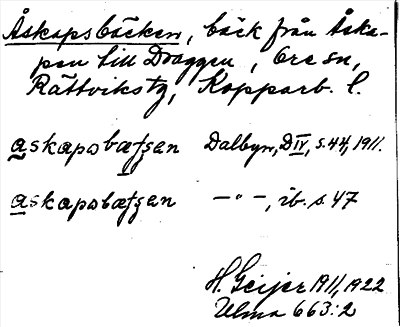 Åskapsbäcken, bäck från Åska-
pen till Draggen, Ore sn,
Rättvikstg, Kopparb. l.
askapsbætʃen Dalbyn, D IV, s. 44, 1911.
askapobætʃen —"—, ib. s. 47
H. Geijer 1911, 1922
Ulma 663:2